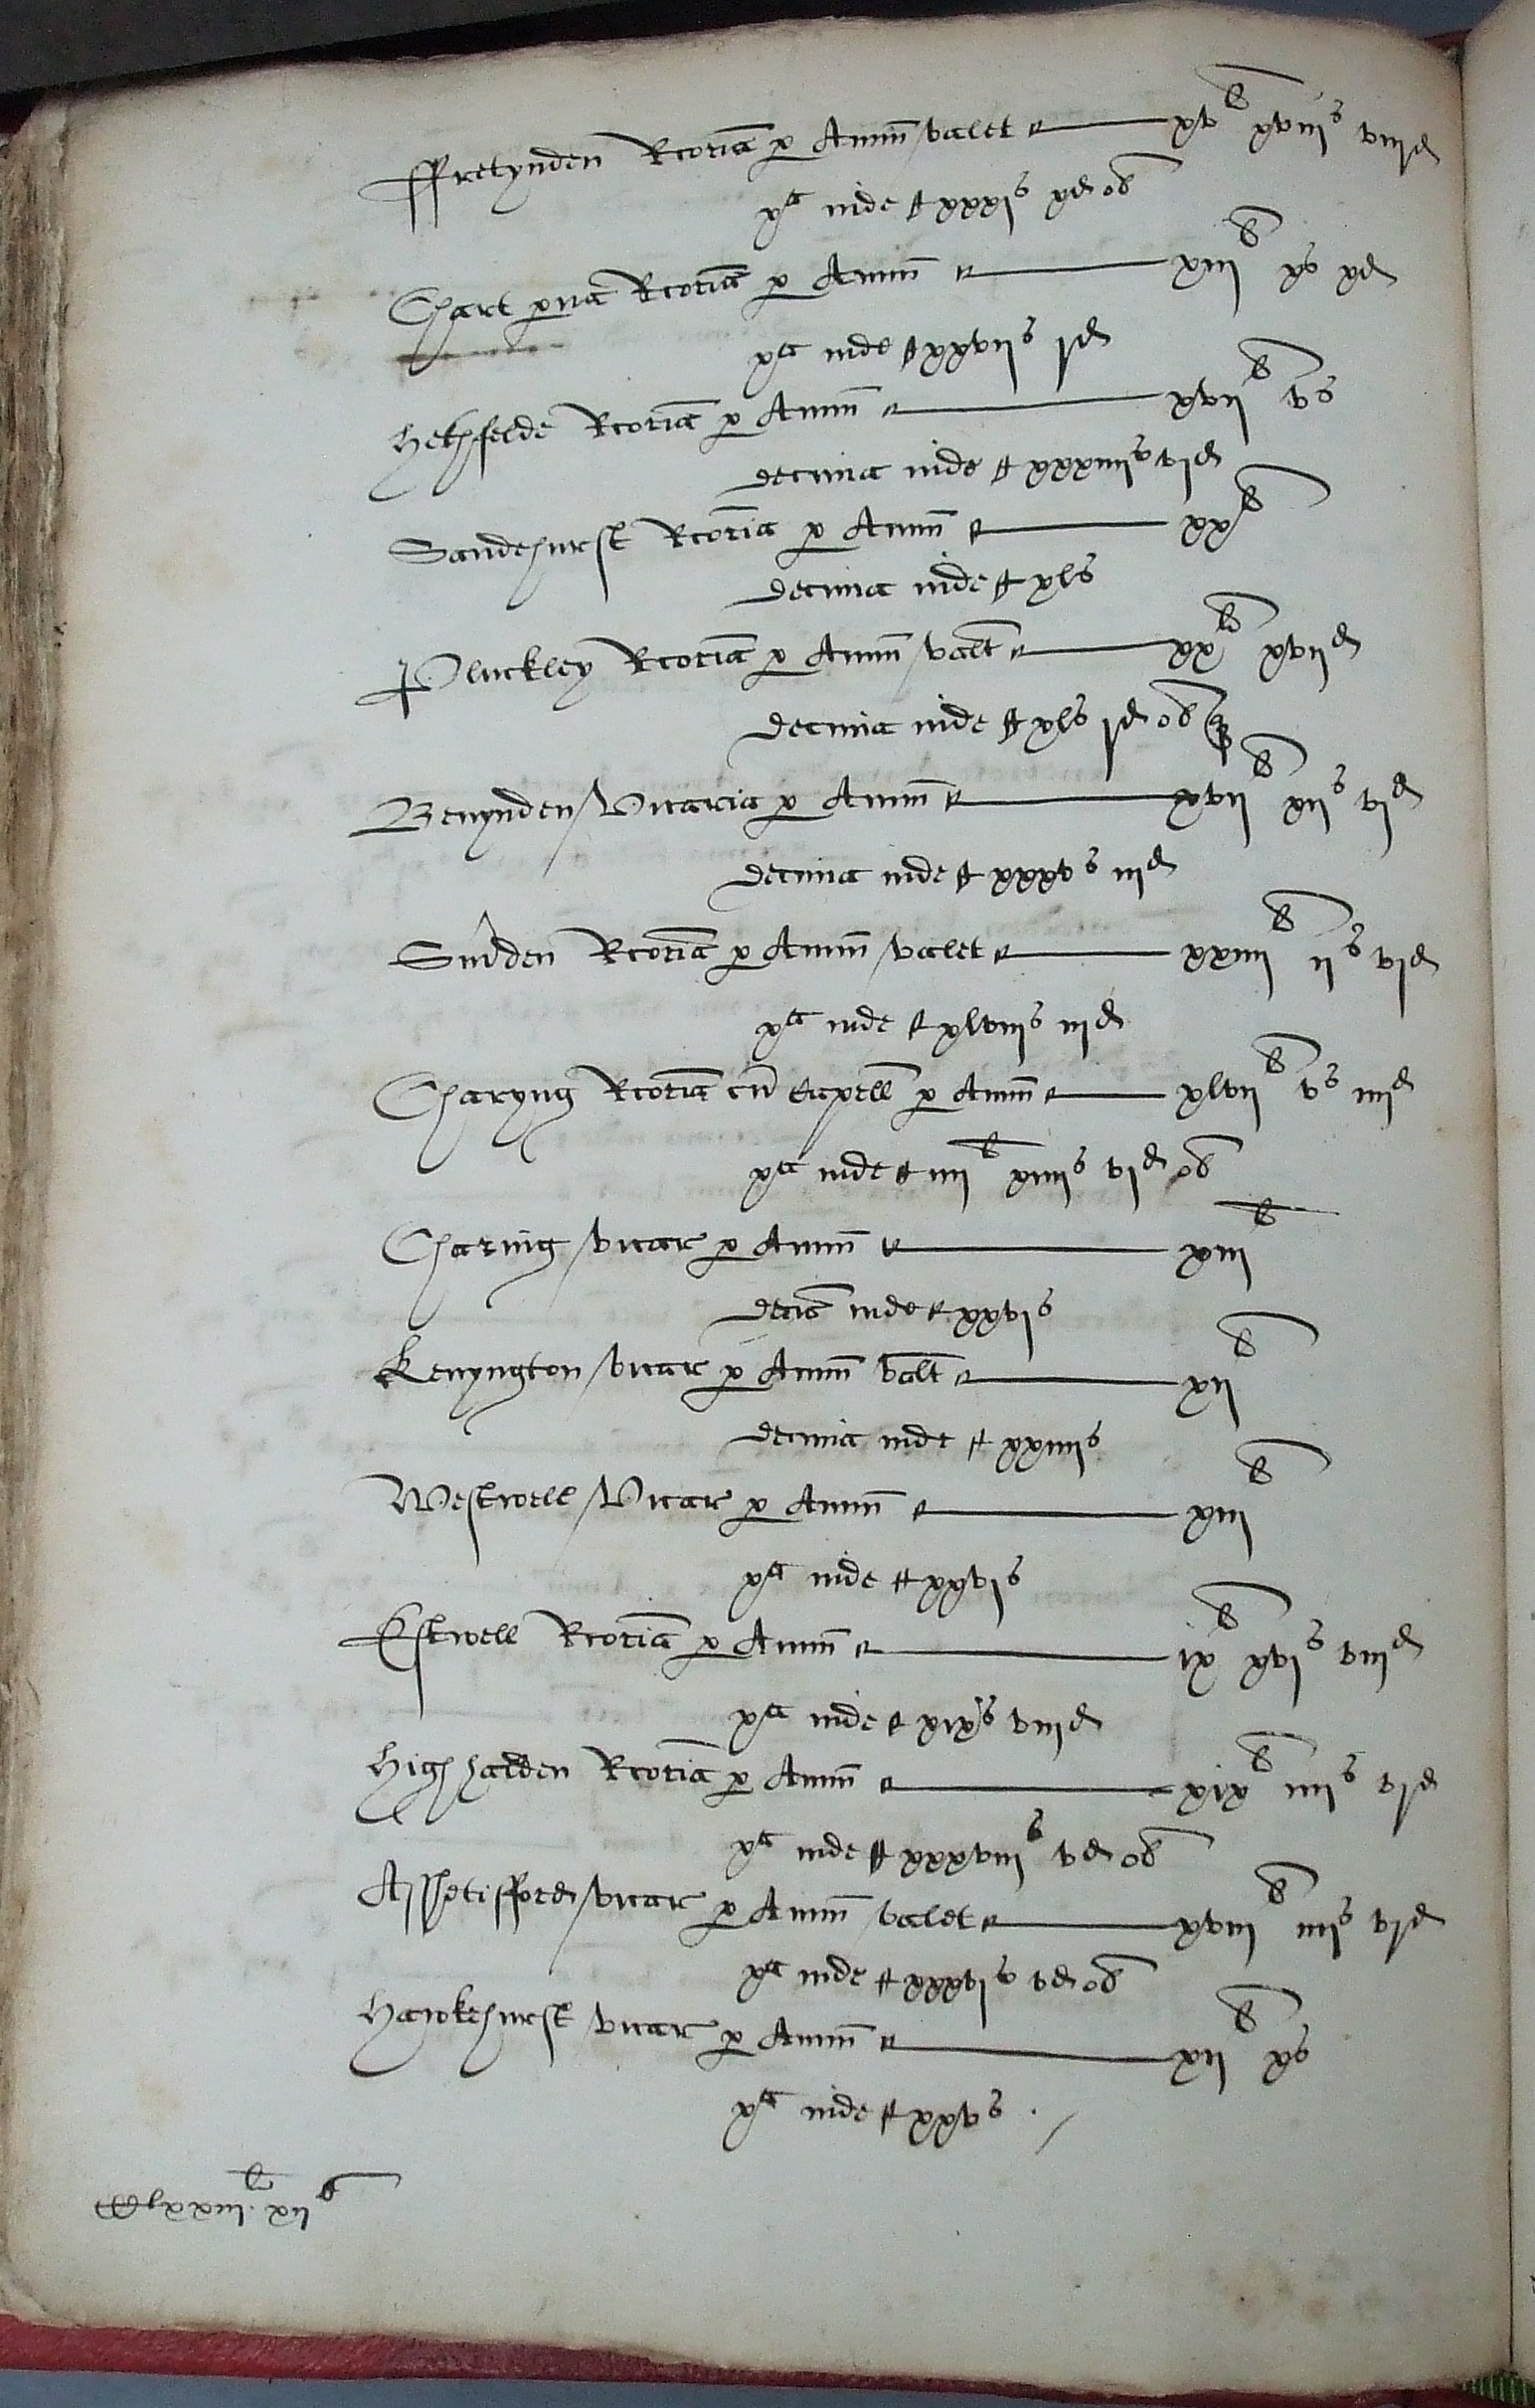 Ffretynden Rcoria p Annu valet — xv li xviii s viii d
xa inde xxxi s x d ob
Chart pua Rcoria p Annu — xiii li x s x d
xa inde xxvii s i d
Hethfelde Rcoria p Annu — xvii li v s
Decima inde xxxiiii s vi d
Sandehurst Rcoria p Annu — xx li
Decima inde xl s
Pluckley Rcoria p Annu valt — xx li xvii d
Decima inde xl s i d ob q
Benynden Vicaria p Annu — xvii li xii s vi d
Decima inde xxxv s iii d
Smrden Rcoria p Annu valet — xxiiii li ii s vi d
xa inde xlviii s iii d
Charyng Rcoria cu Capell p Annu — xlvii li v s iiii d
xa inde iiii li xiiii s vi d ob
Charing vicar p Annu — xiii li
Decia inde xxvi s
Kenyngton vicar p Annu valt — xii li
Decima inde xxiiii s
Westwell Vicar p Annu — xiii li
xa inde xxvi s
Estwell Rcoria p Annu — ix li xvi s viii d
xa inde xix s viii d
High halden Rcoria p Annu — xix li iiii s vi d
xa inde xxxviii s v d ob
Asshetisfford vicar p Annu valet — xviii li iiii s vi d
xa inde xxxvi s v d ob
Hawkehurst vicar p Annu — xii li x s
xa inde xxv s
lxxiii li xii s